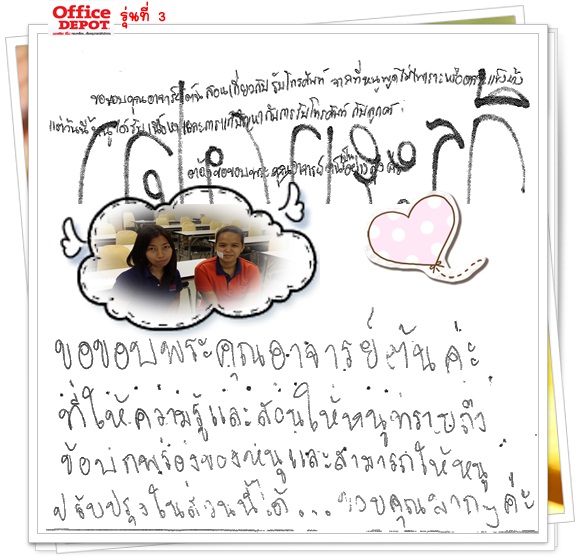 Office
DEPOT
รุ่นที่ 3
ขอขอบคุณอาจารย์ต้น สอนเกี่ยวกับ รับโทรศัพท์ จากที่หนูพูดไม่ไพเราะ
แต่วันนี้ หนูได้รับ การแก้ปัญหากับการรับโทรศัพท์ กับลูกค้า
ต้องขอขอบพระคุณอาจารย์ต้นเป็นอย่างสูง ค่ะ
ขอขอบพระคุณอาจารย์ต้นค่ะ
ที่ให้ความรู้และสอนให้หนูทราบถึง
ข้อบกพร่องของหนูและสามารถให้หนู
ปรับปรุงในส่วนนี้ได้... ขอบคุณมากๆค่ะ